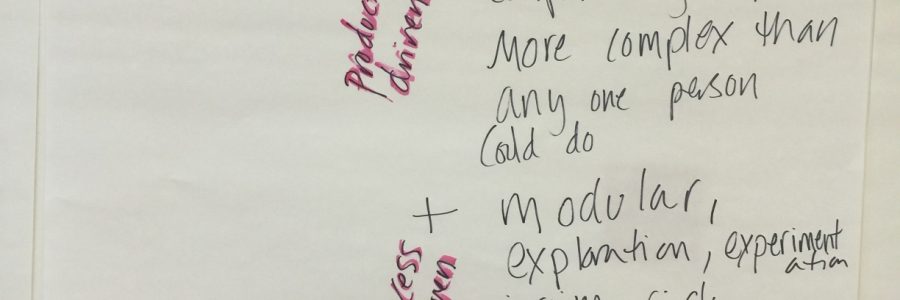 Produc
driven
more complex than
any one person
could do
+ modular,
exploration, experiment
ation
cess
ven